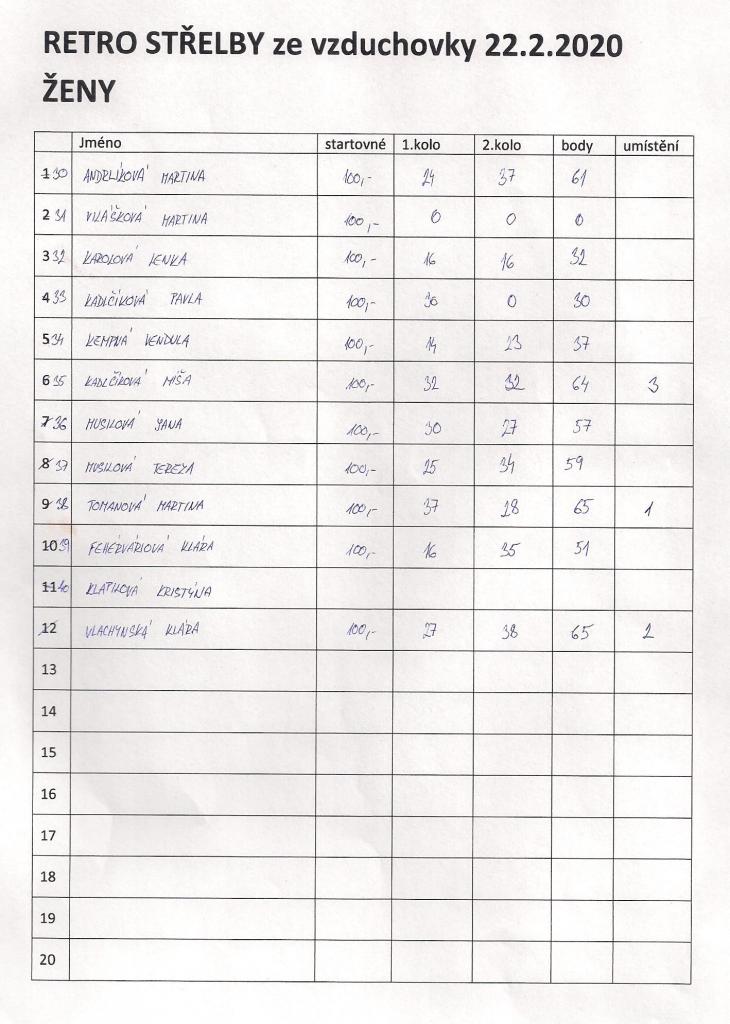 RETRO STŘELBY ze vzduchovky 22.2.2020
ŽENY
Jméno startovné 1.kolo 2.kolo body umístění
1 30 ANDRLÍKOVÁ MARTINA 100,- 24 37 61
2 31 VLÁŠKOVÁ MARTINA 100,- 0 0 0
3 32 KAROLOVÁ LENKA 100,- 16 16 32
4 33 KADLČÍKOVÁ PAVLA 100,- 30 0 30
5 34 KEMPNÁ VENDULA 100,- 14 23 37
6 35 KADLČÍKOVÁ MÍŠA 100,- 32 32 64 3
7 36 MUSILOVÁ JANA 100,- 30 27 57
8 37 MUSILOVÁ TEREZA 100,- 25 34 59
9 38 TOMANOVÁ MARTINA 100,- 37 28 65 1
10 39 FEHÉRVÁRIOVÁ KLÁRA 100,- 16 35 51
11 40 KLAPILOVÁ KRISTÝNA
12 VLACHYNSKÁ KLÁRA 100,- 27 38 65 2
13
14
15
16
17
18
19
20